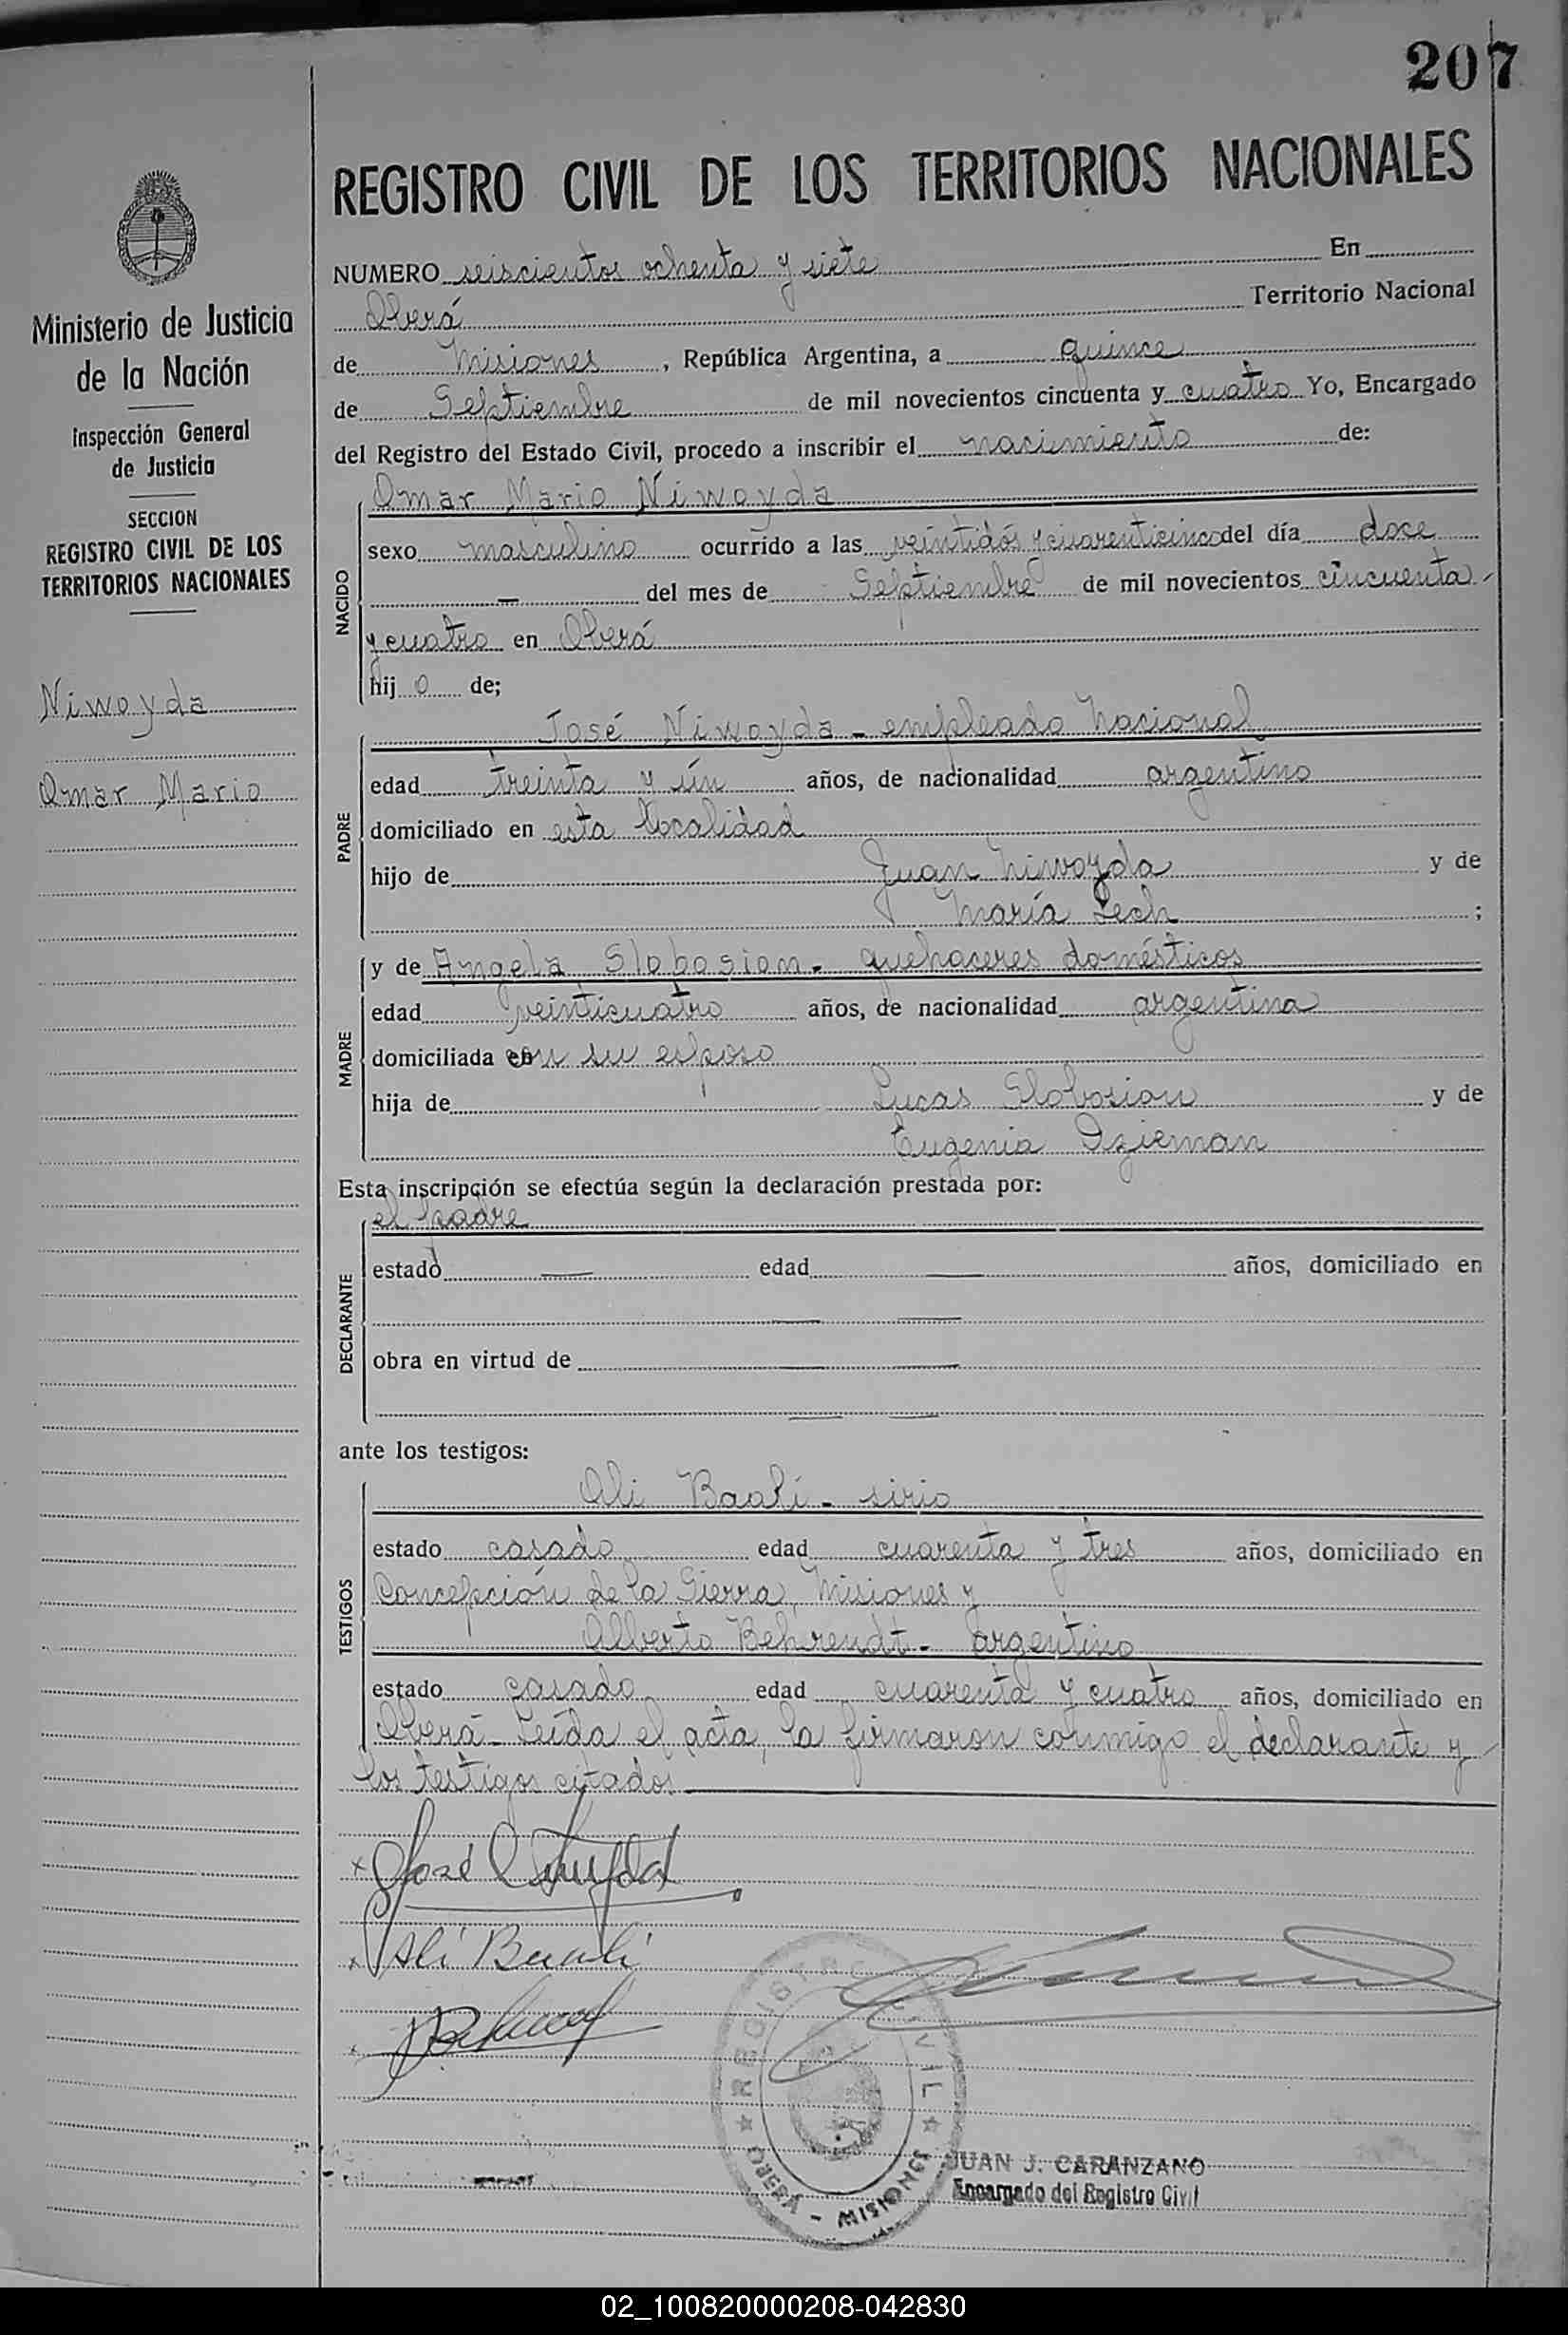 207
Ministerio de Justicia
de la Nación
Inspección General
de Justicia
SECCION
REGISTRO CIVIL DE LOS
TERRITORIOS NACIONALES
Niwoyda
Omar Mario
REGISTRO CIVIL DE LOS TERRITORIOS NACIONALES
NUMERO seiscientos ochenta y siete En
Oberá Territorio Nacional
de Misiones, República Argentina, a quince
de Septiembre de mil novecientos cincuenta y cuatro Yo, Encargado
del Registro del Estado Civil, procedo a inscribir el nacimiento de:
NACIDO
Omar Mario Niwoyda
sexo masculino ocurrido a las veintidós y cuarenticinco del día doce
— del mes de Septiembre de mil novecientos cincuenta
y cuatro en Oberá
hij o de;
PADRE
José Niwoyda - empleado Nacional
edad treinta y ún años, de nacionalidad argentino
domiciliado en esta localidad
hijo de Juan Niwoyda y de
María Lech ;
MADRE
y de Angela Slobosian - quehaceres domésticos
edad veinticuatro años, de nacionalidad argentina
domiciliada con su esposo
hija de Lucas Slobosian y de
Eugenia Dzieman
Esta inscripción se efectúa según la declaración prestada por:
DECLARANTE
el padre
estado — edad — años, domiciliado en
— —
obra en virtud de — —
— —
ante los testigos:
TESTIGOS
Ali Baali - sirio
estado casado edad cuarenta y tres años, domiciliado en
Concepción de la Sierra, Misiones y
Alberto Behrendt - argentino
estado casado edad cuarenta y cuatro años, domiciliado en
Oberá - Leída el acta, la firmaron conmigo el declarante y
los testigos citados
x José
x Alí Buali
x
REGISTRO CIVIL
OBERÁ - MISIONES
JUAN J. CARANZANO
Encargado del Registro Civil
02_100820000208-042830